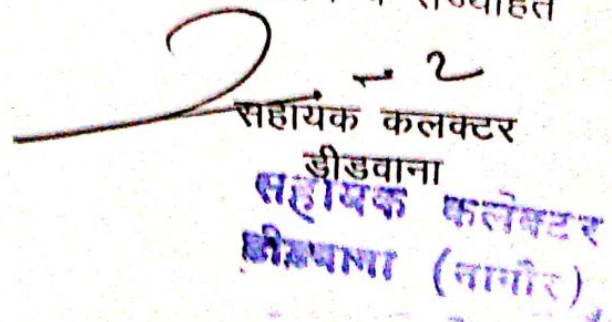 सहायक कलक्टर
डीडवाना
सहायक कलेक्टर
डीडवाना (नागौर)